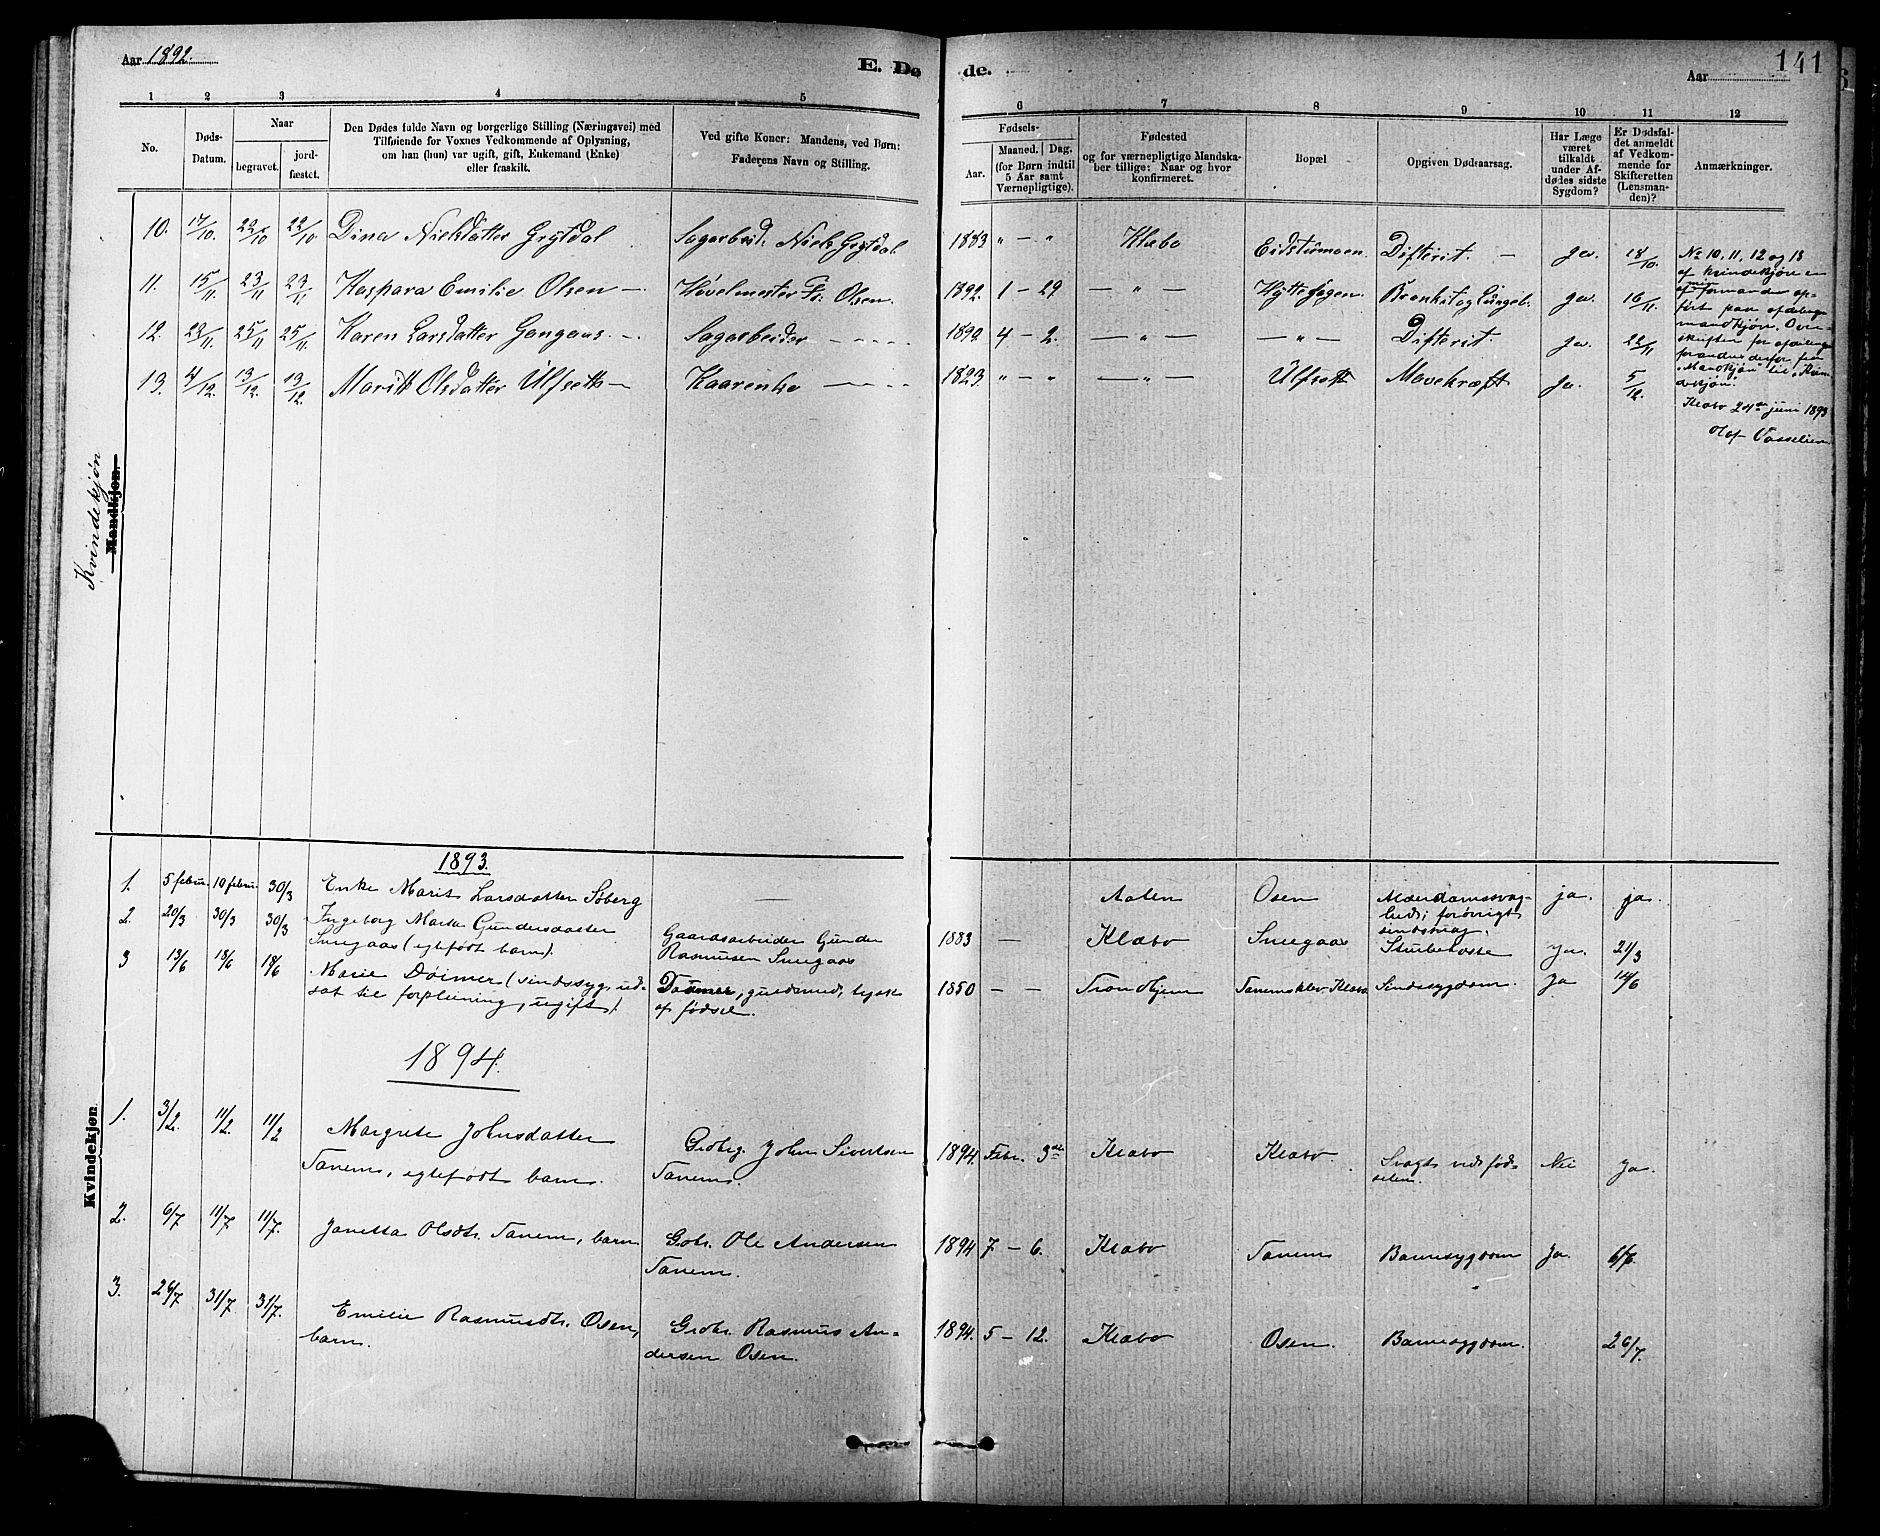 Aar 1892.
E. Dø
de.
Aar
141
1 2 3 4 5 6 7 8 9 10 11 12
No.
Døds-
Datum.
Naar
begravet.
jord-
fæstet.
Den Dødes fulde Navn og borgerlige Stilling (Næringsvei) med
Tilføiende for Voxnes Vedkommende af Oplysning,
om han (hun) var ugift, gift, Enkemand (Enke)
eller fraskilt.
Ved gifte Koner: Mandens, ved Børn:
Faderens Navn og Stilling.
Fødsels-
Aar.
Maaned. Dag.
(for Børn indtil
5 Aar samt
Værnepligtige).
Fødested
og for værnepligtige Mandska-
ber tillige: Naar og hvor
konfirmeret.
Bopæl
Opgiven Dødsaarsag.
Har Læge
været
tilkaldt
under Af-
dødes sidste
Sygdom?
Er Dødsfal-
det anmeldt
af Vedkom-
mende for
Skifteretten
(Lensman-
den)?
Anmærkninger.
Kvindekjøn
Mandkjøn.
10. 17/10. 22/10 22/10 Dina Nielsdatter Grytdal Sagarbeid. Niels Grytdal 1883 " - " Klæbo Eidstumoen Difterit. - Ja. 18/10.
11. 15/11. 23/11 23/11 Kaspara Emilie Olsen - Høvelmester Fr. Olsen. 1892. 1 - 29 - " - Hyttefagen Bronkit og Lungeb. Ja. 16/11.
12. 23/11. 25/11 25/11. Karen Larsdatter Gangaas - Sagarbeider - - - - 1892 4 - 2. - " - - " - Difterit. Ja. 22/11
13. 4/12. 13/12. 13/12. Maritt Olsdatter Ulfseth - Kaarenke - - - 1823. " - " - " - Ulfseth Mavekræft Ja. 5/12.
No 10, 11, 12 og 13
af kvindekjøn er
af formanden op-
ført paa afdelingen
mandkjøn. Over-
skriften for afdelingen
forandres derfor fra
"Mandkjøn" til "Kvin-
dekjøn".
Klæbo 24de juni 1893
Olaf Vasselien
1893.
1. 5 febru. 10 febru. 30/3 Enke Marit Larsdatter Søberg - Aalen Osen Alderdomssvag-
hed; forøvrigt
sindssvag. ja. ja.
2. 20/3 30/3 30/3 Ingeborg Marta Gundersdatter
Snegaas (egtefødt barn). Gaardsarbeider Gunder
Rasmusen Snegaas 1883 - Klæbo Snegaas Strubehoste ja. 21/3
3 13/6 18/6 18/6 Marie Döimer (sindssyg, ud-
sat til forpleining, ugift). Doimer, guldsmed, tysk
af fødsel. 1850 - - Trondhjem Tanemsklev Klæbo Sindssygdom. Ja 14/6
1894.
Kvindekjøn
1. 3/2. 11/2. 11/2 Margrete Johnsdatter
Tanem, egtefødt barn. Grdbrg. John Sivertsen
Tanem. 1894. Febr. 3de Klæbo Klæbo. Svagt ved fød-
selen. Nei Ja.
2. 6/7 11/7 11/7. Janetta Olsdtr. Tanem, barn Gbr. Ole Andersen
Tanem. 1894 7 - 6. Klæbo Tanem Barnesygdom Ja. 6/7.
3. 26/7 31/7 31/7. Emilie Rasmusdtr. Osen,
barn. Grdbr. Rasmus An-
dersen Osen. 1894. 5 - 12. Klæbo Osen. Barnesygdom. 26/7.